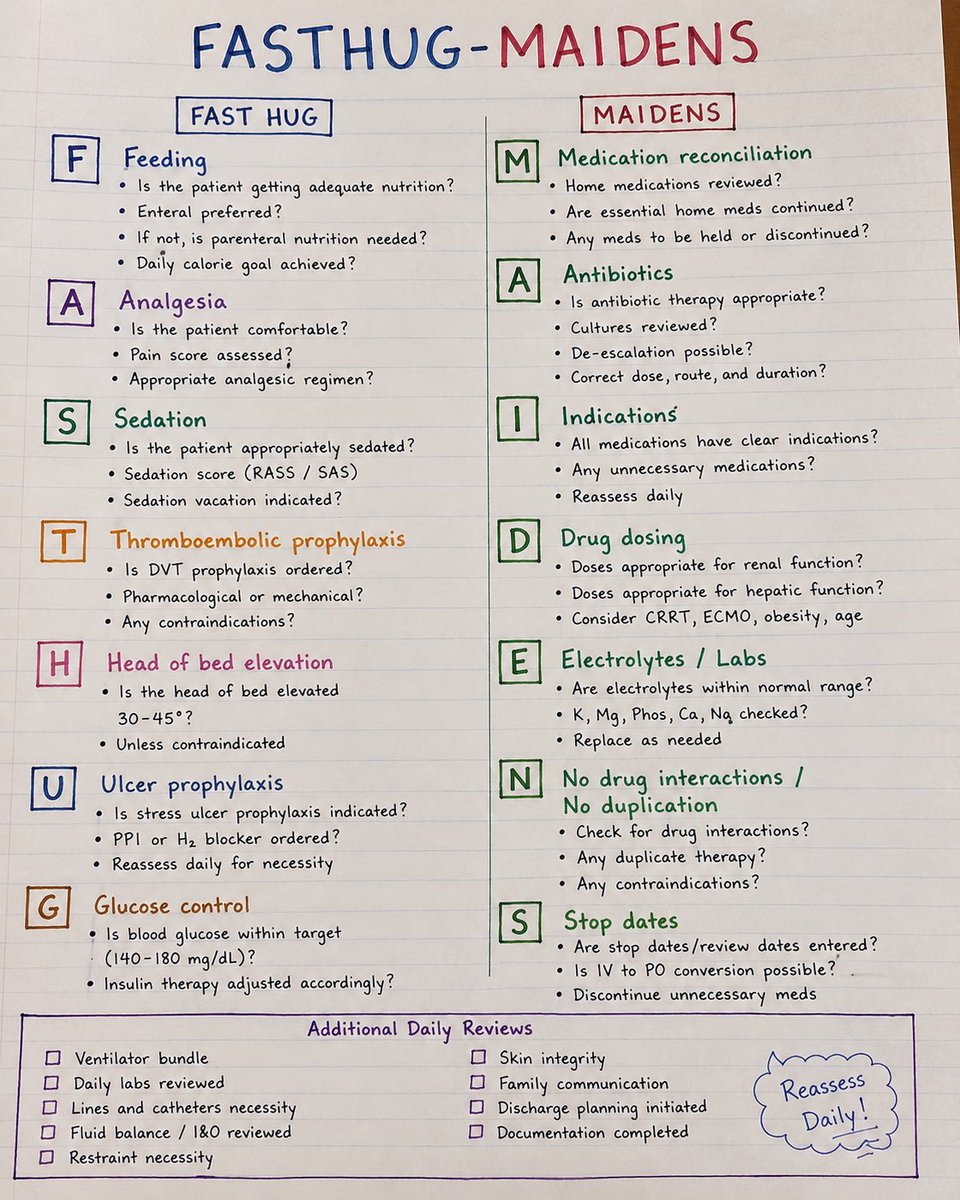 FASTHUG-MAIDENS
FAST HUG
F Feeding
• Is the patient getting adequate nutrition?
• Enteral preferred?
• If not, is parenteral nutrition needed?
• Daily calorie goal achieved?
A Analgesia
• Is the patient comfortable?
• Pain score assessed?
• Appropriate analgesic regimen?
S Sedation
• Is the patient appropriately sedated?
• Sedation score (RASS / SAS)
• Sedation vacation indicated?
T Thromboembolic prophylaxis
• Is DVT prophylaxis ordered?
• Pharmacological or mechanical?
• Any contraindications?
H Head of bed elevation
• Is the head of bed elevated
30-45°?
• Unless contraindicated
U Ulcer prophylaxis
• Is stress ulcer prophylaxis indicated?
• PPI or H₂ blocker ordered?
• Reassess daily for necessity
G Glucose control
• Is blood glucose within target
(140-180 mg/dL)?
• Insulin therapy adjusted accordingly?
MAIDENS
M Medication reconciliation
• Home medications reviewed?
• Are essential home meds continued?
• Any meds to be held or discontinued?
A Antibiotics
• Is antibiotic therapy appropriate?
• Cultures reviewed?
• De-escalation possible?
• Correct dose, route, and duration?
I Indications
• All medications have clear indications?
• Any unnecessary medications?
• Reassess daily
D Drug dosing
• Doses appropriate for renal function?
• Doses appropriate for hepatic function?
• Consider CRRT, ECMO, obesity, age
E Electrolytes / Labs
• Are electrolytes within normal range?
• K, Mg, Phos, Ca, Na checked?
• Replace as needed
N No drug interactions /
No duplication
• Check for drug interactions?
• Any duplicate therapy?
• Any contraindications?
S Stop dates
• Are stop dates/review dates entered?
• Is IV to PO conversion possible?
• Discontinue unnecessary meds
Additional Daily Reviews
☐ Ventilator bundle
☐ Daily labs reviewed
☐ Lines and catheters necessity
☐ Fluid balance / I&O reviewed
☐ Restraint necessity
☐ Skin integrity
☐ Family communication
☐ Discharge planning initiated
☐ Documentation completed
Reassess
Daily!